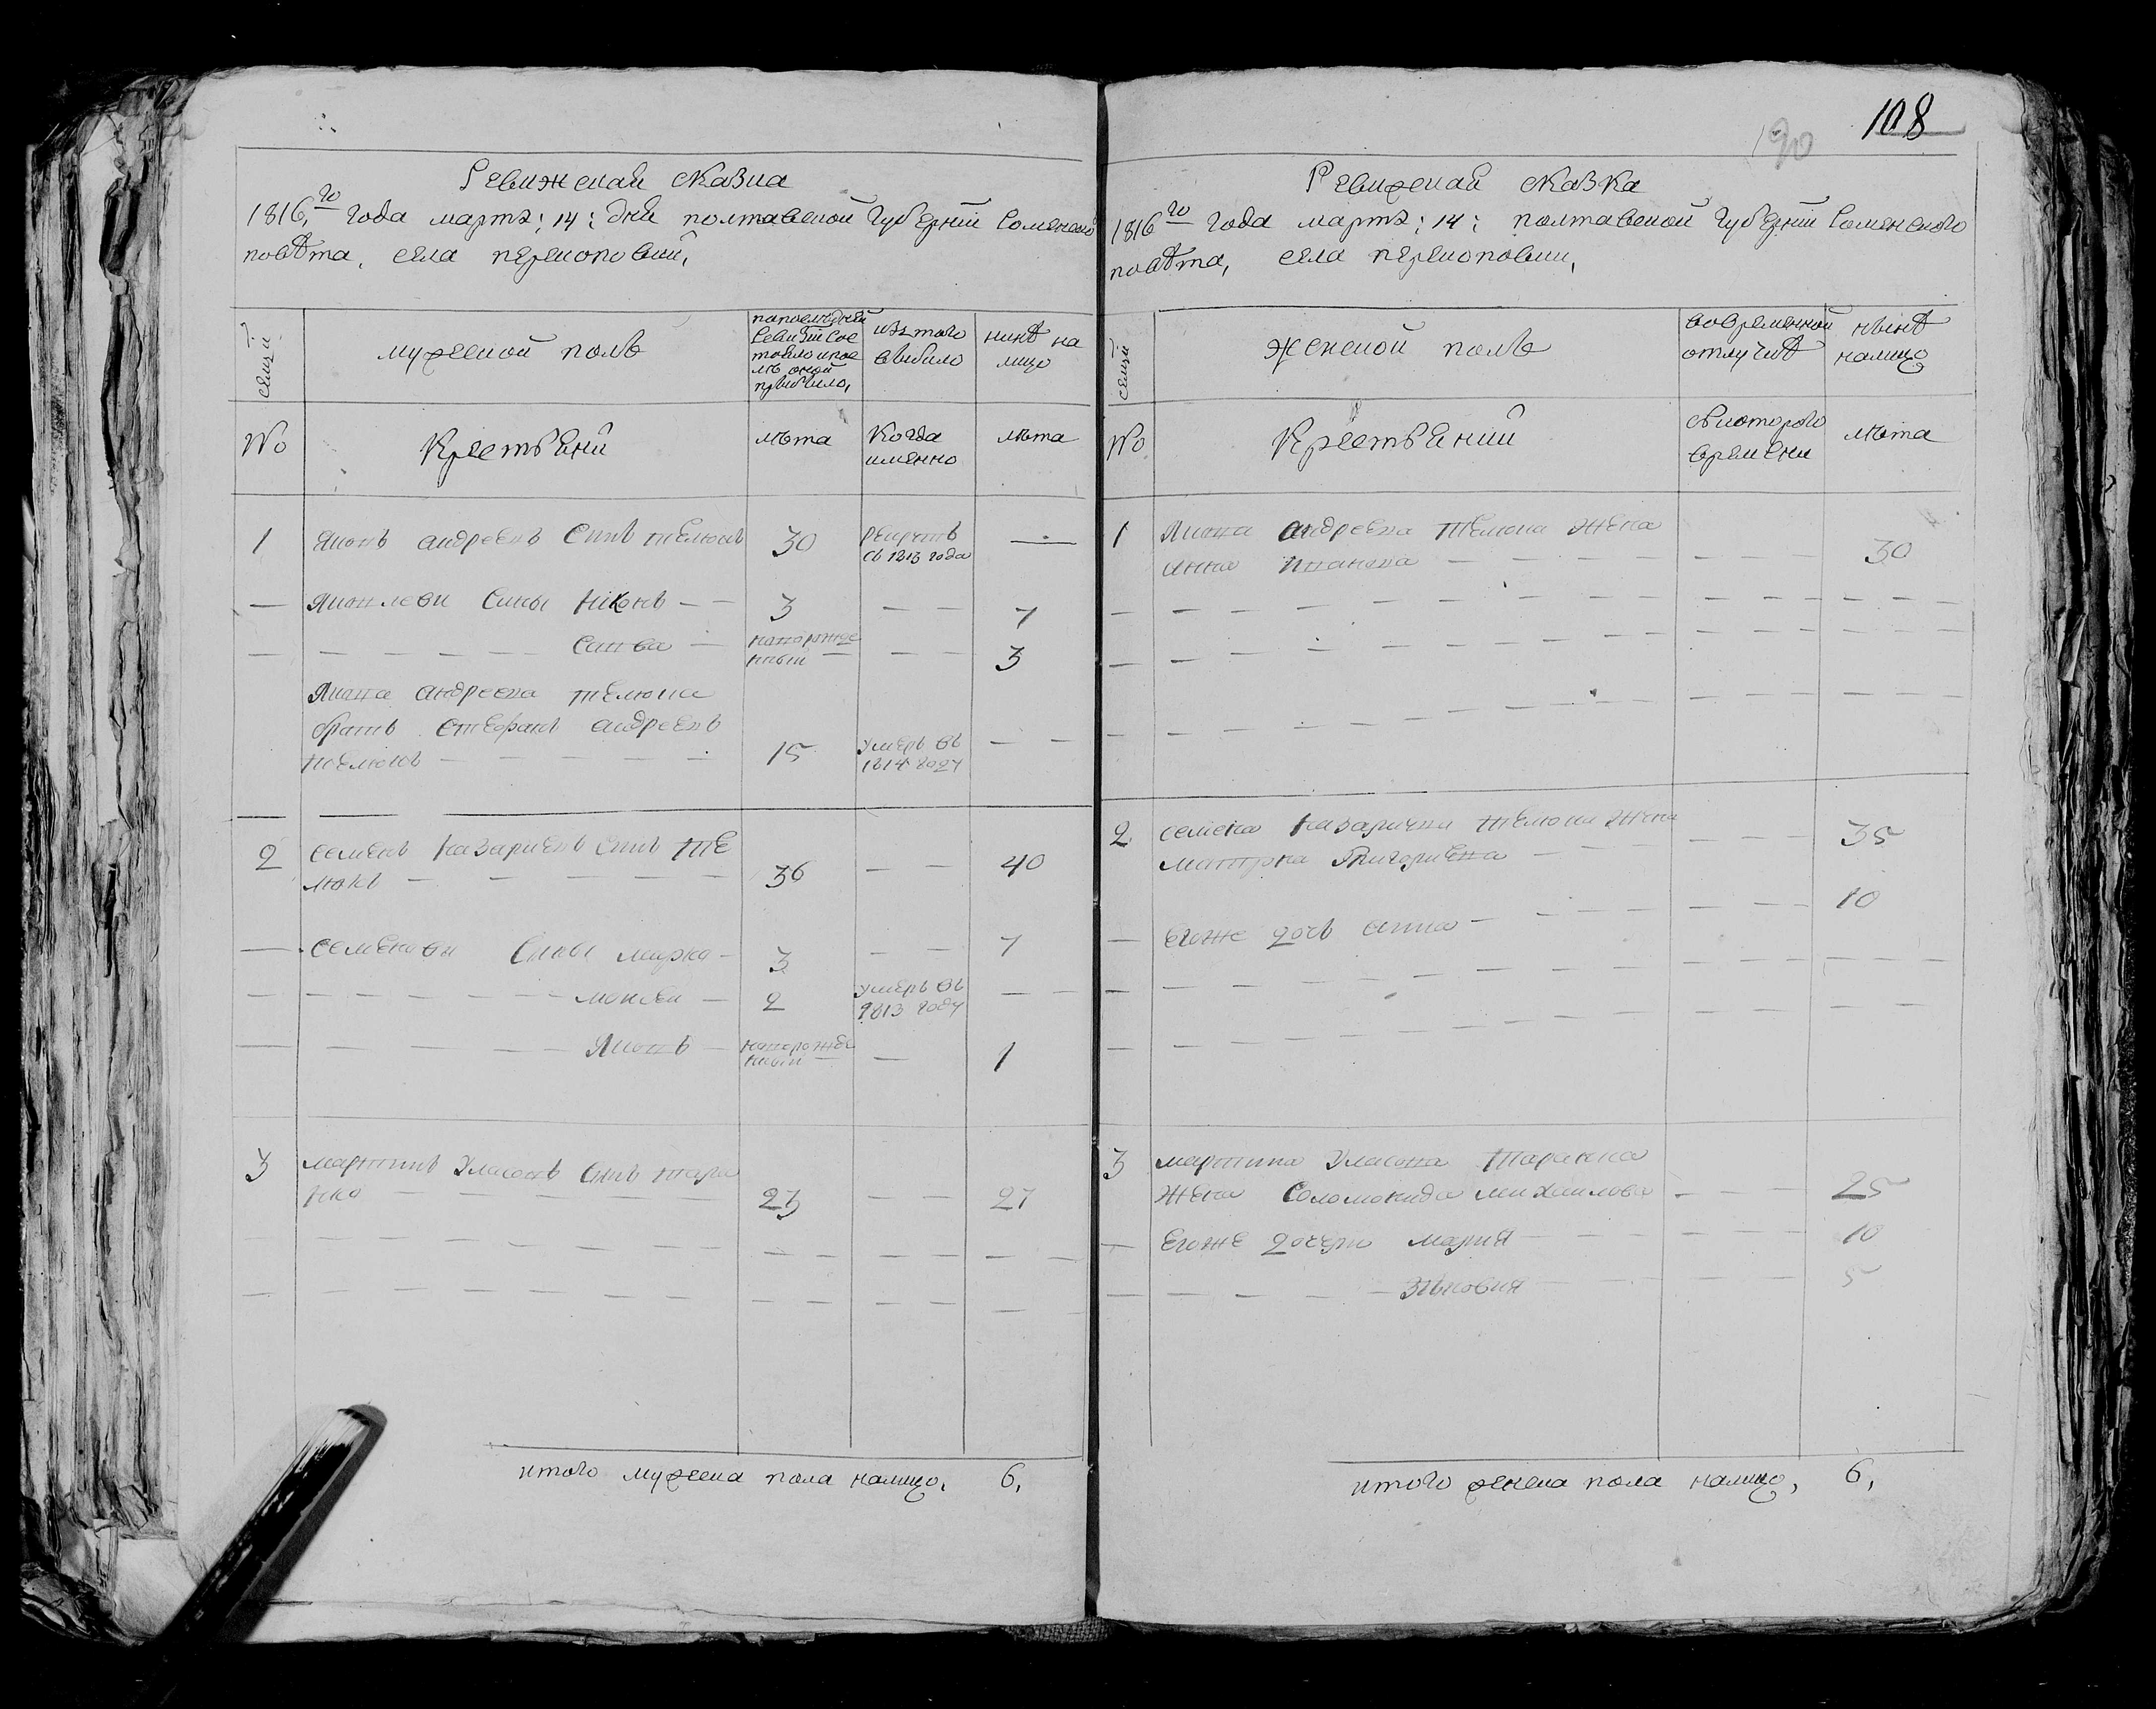 108
190
Ревижская сказка
1816го года марта: 14: дня полтавской губернии Роменского
повѣта, села перекоповки,
семьи
мужеской полъ
попоследней
ревизiи сос
тояло и пос
лѣ оной
прибыло,
изъ того
выбыло
нинѣ на
лицо
No
Крестьяни
лѣта
когда
именно
лѣта
1
Яковъ андреевъ синъ телюкъ
30
рекрутъ
съ 1813 года
—
Яковлеви сины никонъ
3
7
Савва
новорожде
нный
3
Якова андреева телюка
братъ стефанъ андреевъ
телюкъ
15
умеръ въ
1814 году
2
семенъ назариевъ синъ те
люкъ
36
40
семенови сины марко
3
7
моисеи
2
умеръ въ
1813 году
Яковъ
новорожде
нный
1
3
мартинъ Уласовъ синъ тара
нко
23
27
итого мужеска пола налицо, 6,
Ревижская сказка
1816го года марта: 14: полтавской губернии Роменского
повѣта, села перекоповки,
семьи
женской полъ
вовременной
отлучкѣ
нынѣ
налицо
No
Крестьянии
съкоторого
времени
лѣта
1
Якова андреева телюка жена
анна иванова
30
2
семена назариева телюка жена
матрона Григориева
35
егоже дочь анна
10
3
мартина Уласова таранка
жена Соломонида михаилова
25
егоже дочери мария
10
зѣновия
5
итого женска пола налицо, 6,